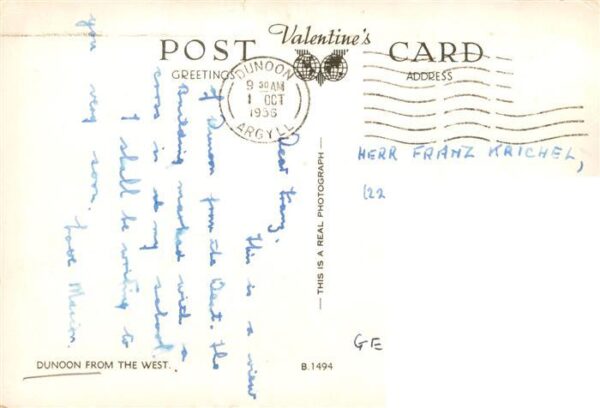 POST Valentine's CARD
GREETINGS ADDRESS
DUNOON
9 30 AM
1 OCT
1956
ARGYLL
Dear Franz,
This is a view
of Dunoon from the West. The
Building marked with a
cross is my school.
I shall be writing to
you very soon.
Love Marion.
THIS IS A REAL PHOTOGRAPH
HERR FRANZ KRICHEL,
(22
GE
DUNOON FROM THE WEST.
B.1494